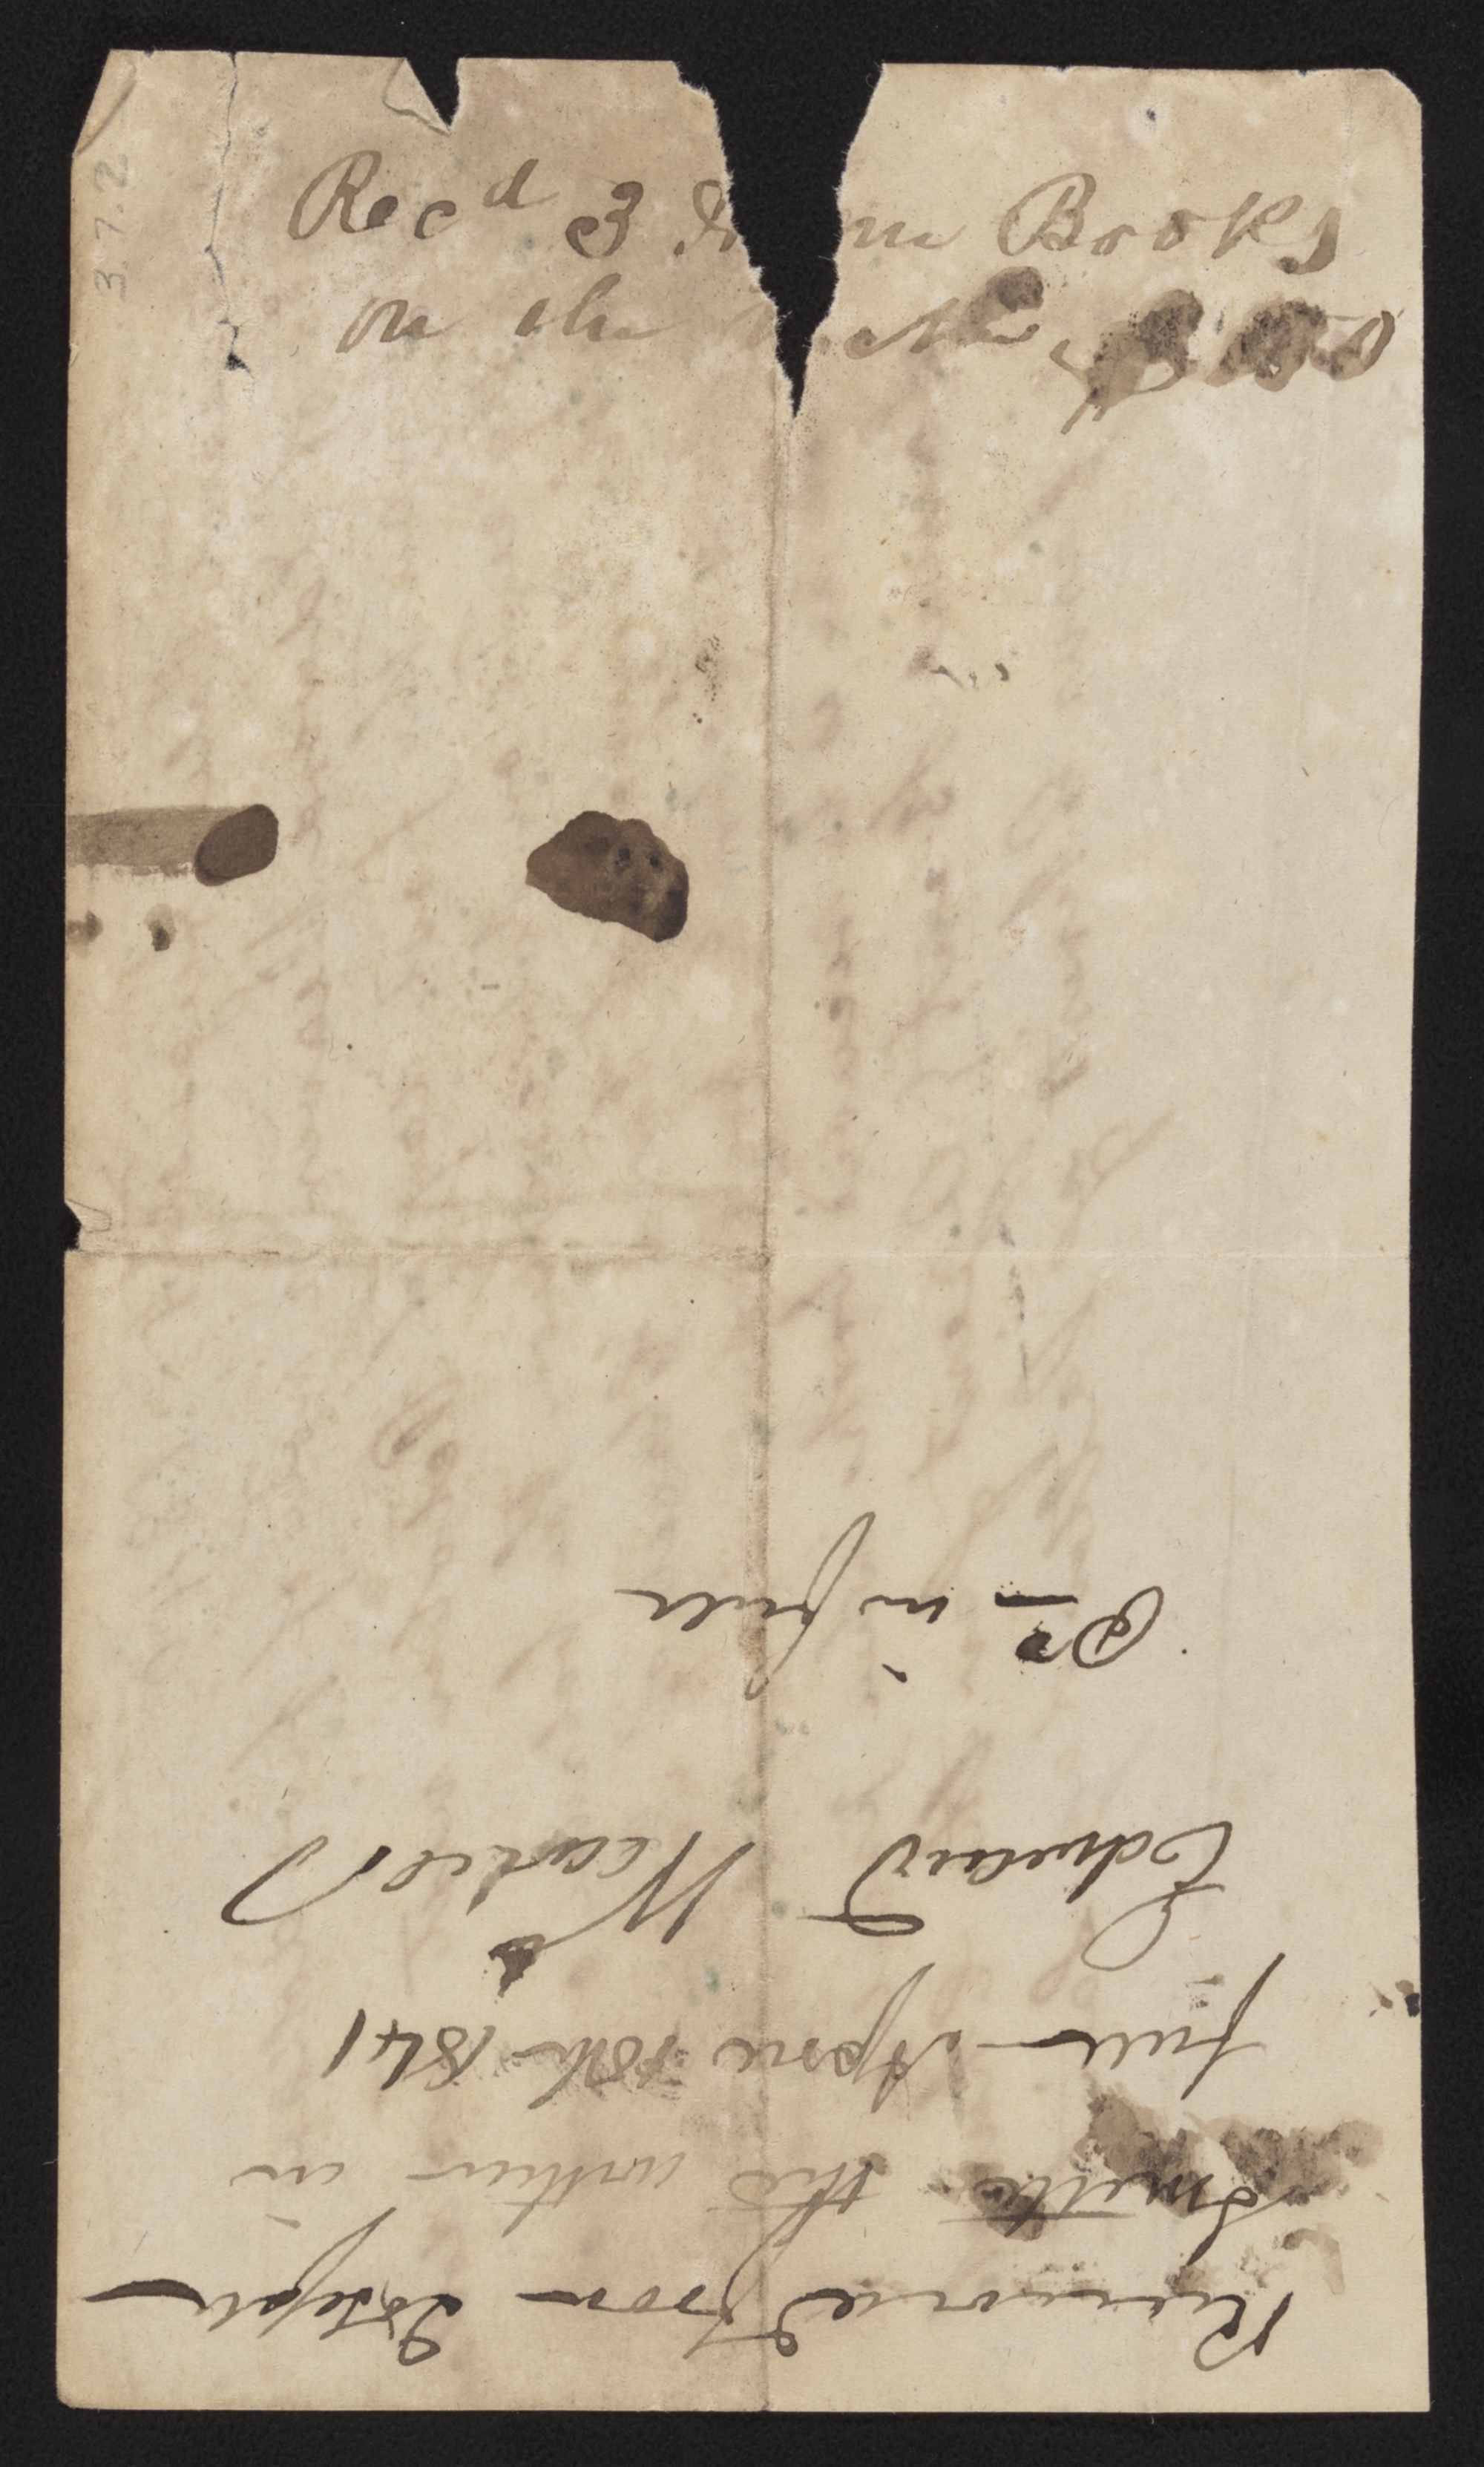 Recd 3 Books
on the
3.7.2
Received from Joseph
Smith the within in
full April 1841
Edward
Pd in full